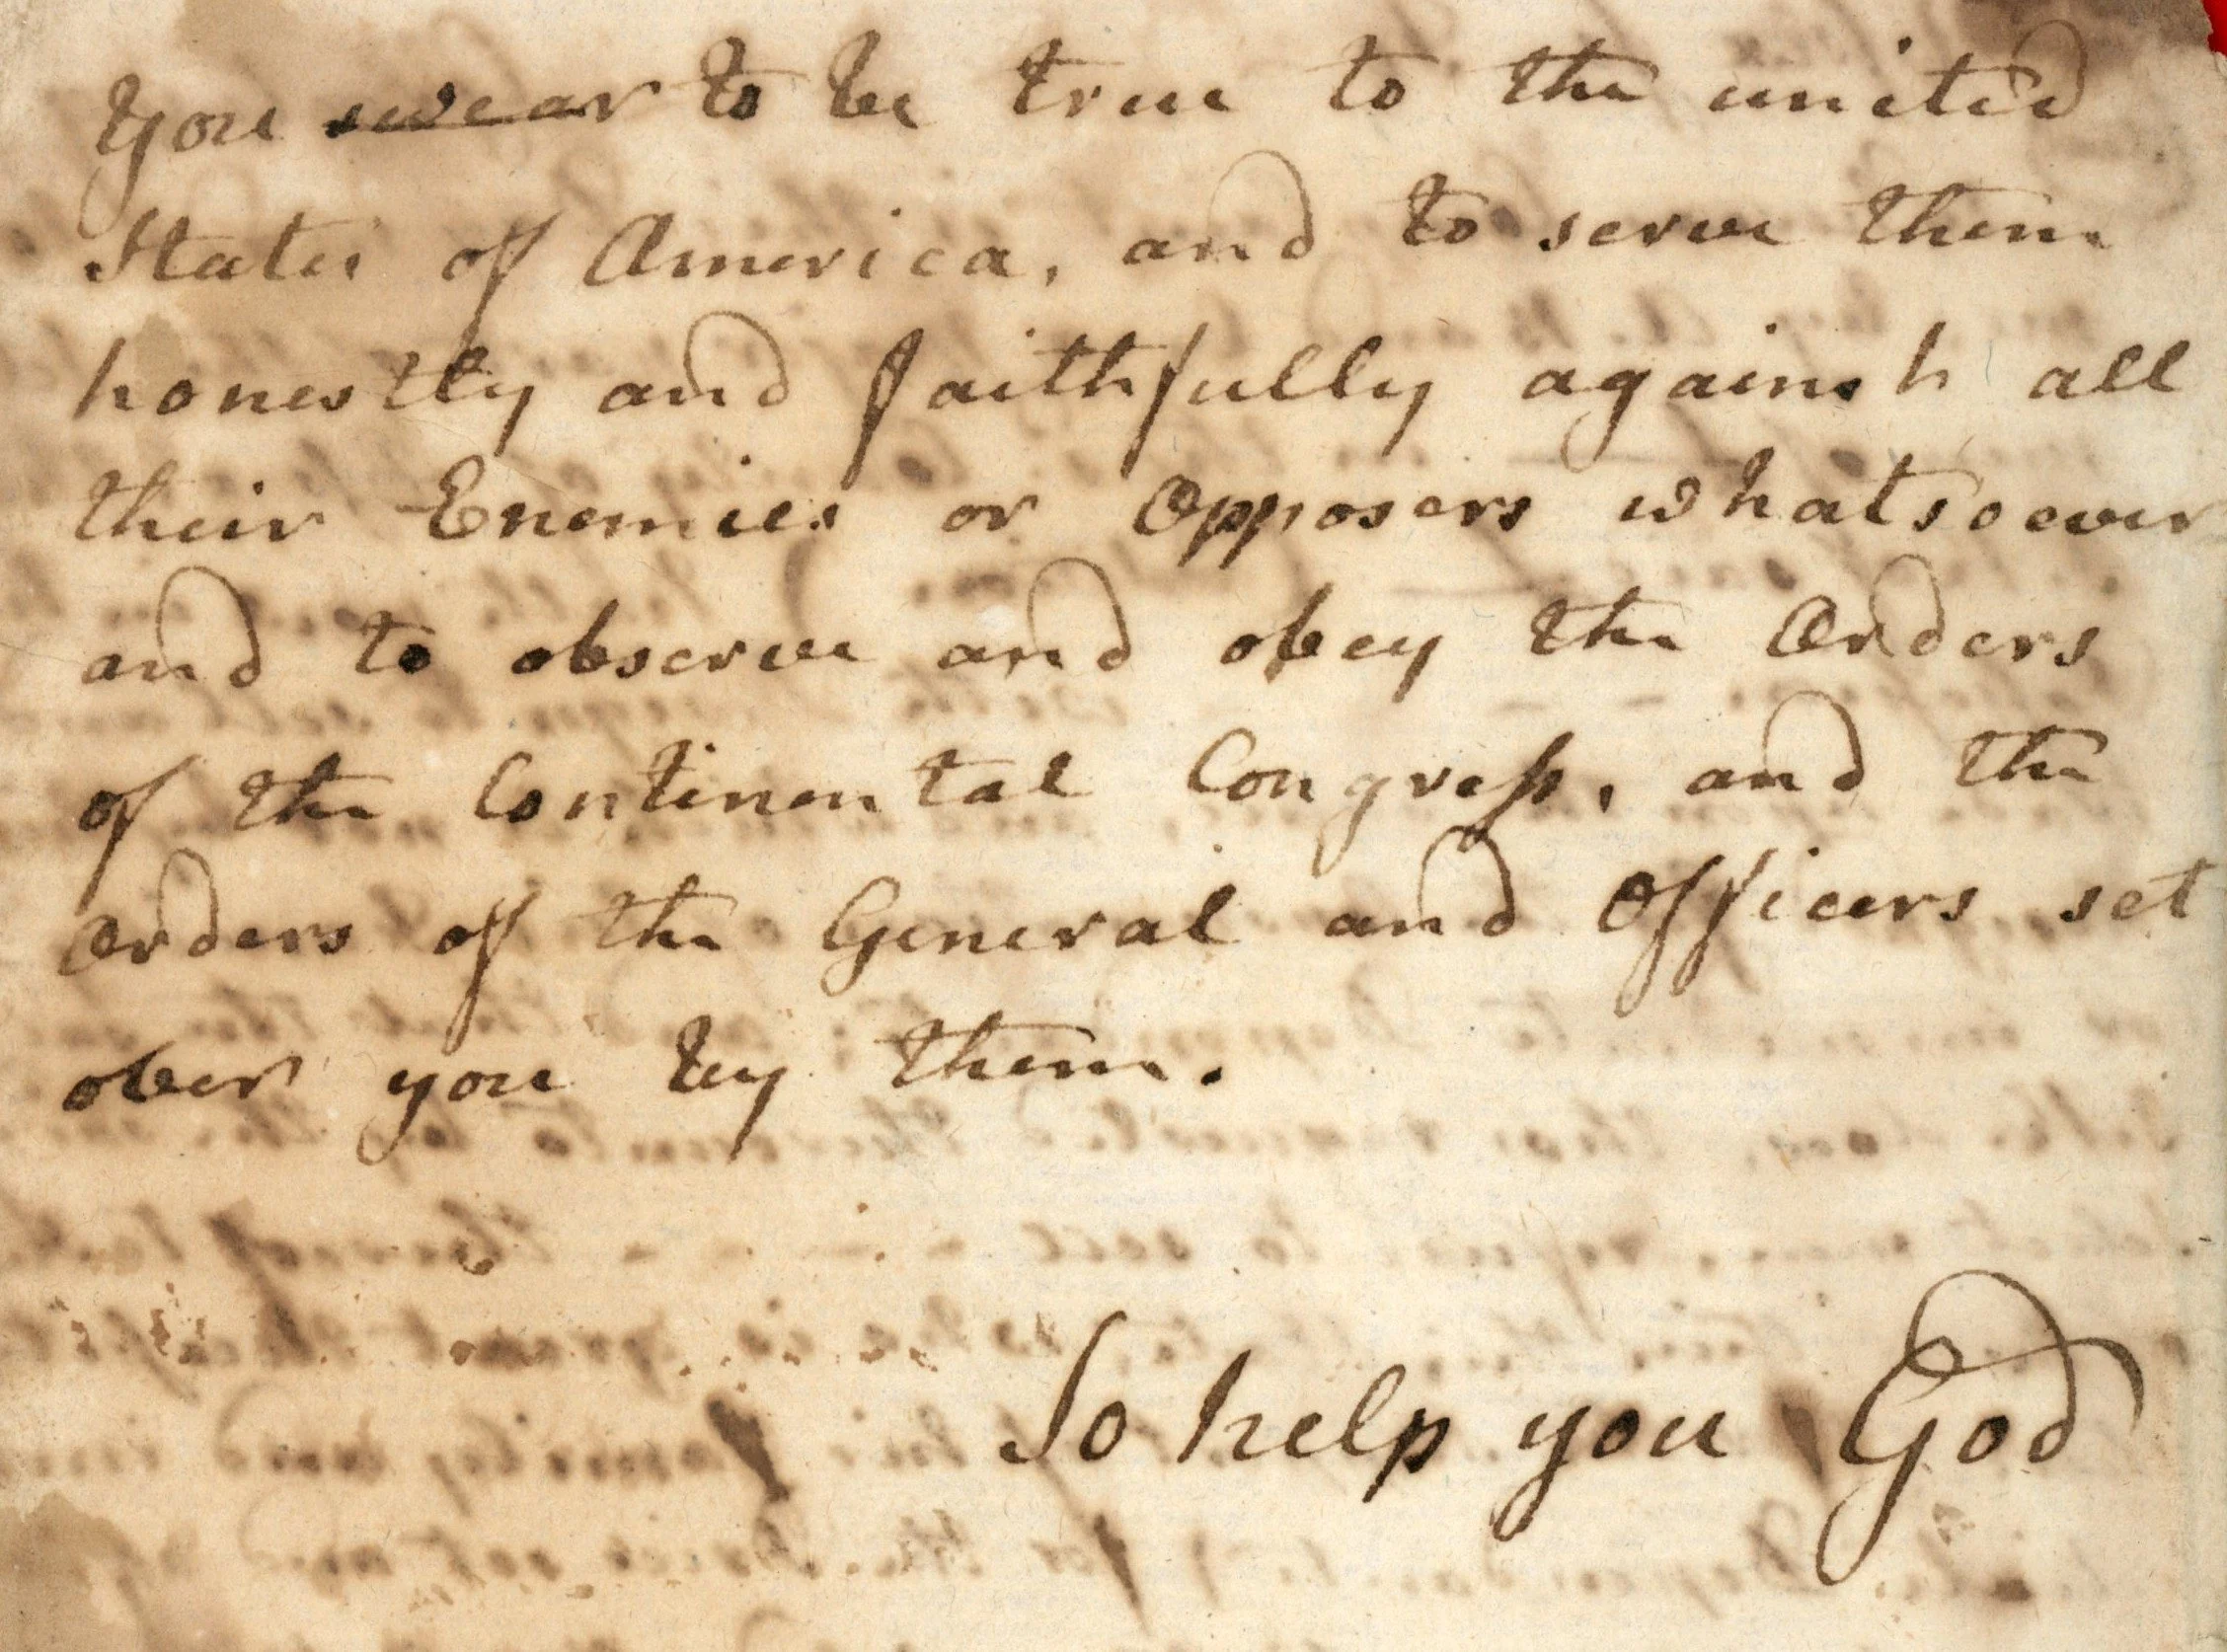 You swear to be true to the united
States of America, and to serve them
honestly and faithfully against all
their Enemies or opposers whatsoever
and to observe and obey the Orders
of the Continental Congress, and the
Orders of the General and Officers set
over you by them.
So help you God